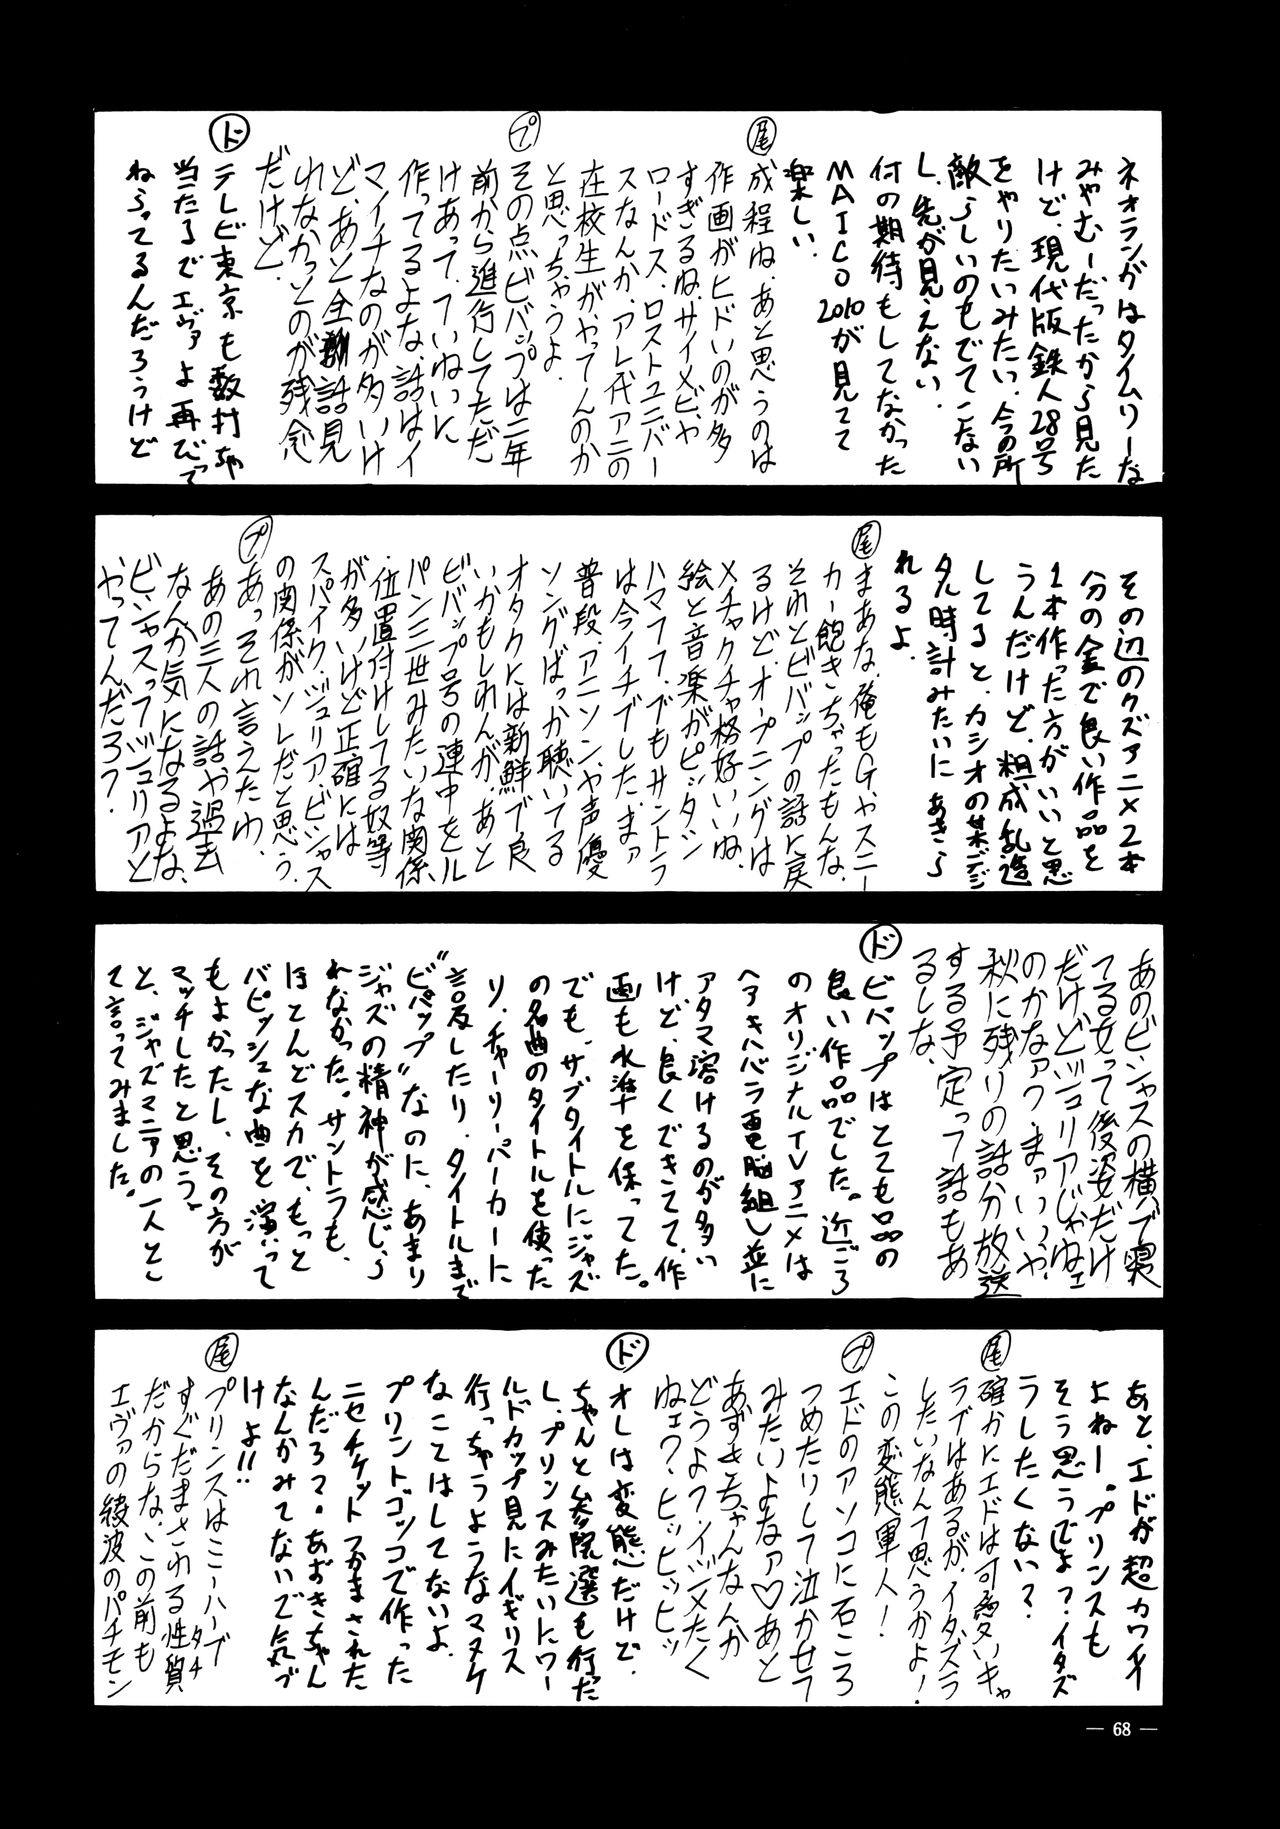 ネオランガはタイムリーな
みやむーだったから見た
けど、現代版鉄人28号
をやりたいみたい。今の所
敵らしいのもでてこない
し、先が見えない。
付の期待もしてなかった
MAICO2010が見てて
楽しい。
尾
成程ね、あと思うのは
作画がヒドいのが多
すぎるね、サイメビや
ロードス、ロストユニバー
スなんか、アレ代アニの
在校生がやってんのか
と思っちゃうよ。
プ
その点ビバップは二年
前から進行してただ
けあって、ていねいに
作ってるよな、話はイ
マイチなのが多いけ
ど、あと全話見
れなかったのが残念
だけど。
ド
テレビ東京も数打ちゃ
当たるでエヴァよ再びって
ねらってるんだろうけど
その辺のクズアニメ2本
分の金で良い作品を
1本作った方がいいと思
うんだけど、粗成乱造
してると、カシオの某デジ
タル時計みたいにあきら
れるよ。
尾
まあな、俺もG、ヤスニー
カー飽きちゃったもんな、
それとビバップの話に戻
るけど、オープニングは
メチャクチャ格好いいね、
絵と音楽がピッタシ
ハマって、でもサントラ
は今イチでした、まァ
普段、アニソンや声優
ソングばっか聴いてる
オタクには新鮮で良
いかもしれんが、あと
ビバップ号の連中をル
パン三世みたいな関係
位置付けしてる奴等
が多いけど正確には
スパイク・ジュリア・ビシャス
の関係がソレだと思う。
プ
あっそれ言えたわ、
あの三人の話や過去
なんか気になるよな、
ビシャスってジュリアと
やってんだろ?
あのビシャスの横で寝
てる女って後姿だけ
だけどジュリアじゃねェ
のかなァ?まァいいや、
秋に残りの話分放送
する予定って話もあ
るしな、
ド
ビバップはとても品の
良い作品でした。近ごろ
のオリジナルTVアニメは
ヘアキハバラ電脳組し並に
アタマ溶けるのが多い
けど、良くできてて、作
画も水準を保ってた。
でも、サブタイトルにジャズ
の名曲のタイトルを使った
り、チャーリー・パーカーに
言及したり、タイトルまで
“ビバップ”なのに、あまり
ジャズの精神が感じら
れなかった。サントラも、
ほとんどスカで、もっと
バピッシュな曲を演って
もよかったし、その方が
マッチしたと思う。
と、ジャズマニアの一人とし
て言ってみました。
ド
オレは変態だけど、
ちゃんと参院選も行った
し、プリンスみたいにワー
ルドカップ見にイギリス
行っちゃうようなマヌケ
なことはしてないよ。
プリントゴッコで作った
ニセチケットつかまされた
んだろ?あずきちゃん
なんかみてないで気づ
けよ!!
尾
プリンスはミーハーで
すぐだまされる性質タチ
だからな、この前も
エヴァの綾波のパチモン
— 68 —